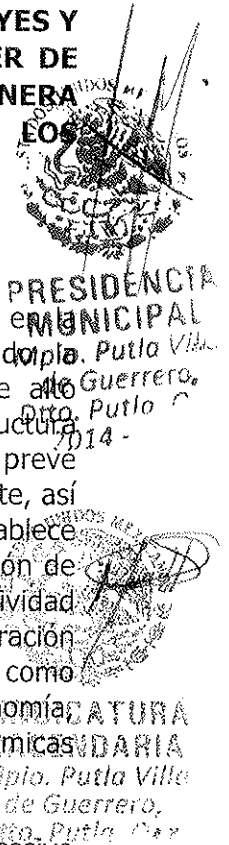 YES Y
ER DE
NERA
LOS
UNIDOS ME
PRESIDENCIA
MUNICIPAL
Mplo. Putla Villa
de Guerrero,
Dtto. Putla
2014 -
en la
do, la
e alto
uctura
prevé
te, así
ablece
ón de
tividad
ración
como
nomía,
micas
UNIDOS MEX
CATURA
NDARIA
Mplo. Putla Villa
de Guerrero,
Dtto. Putla